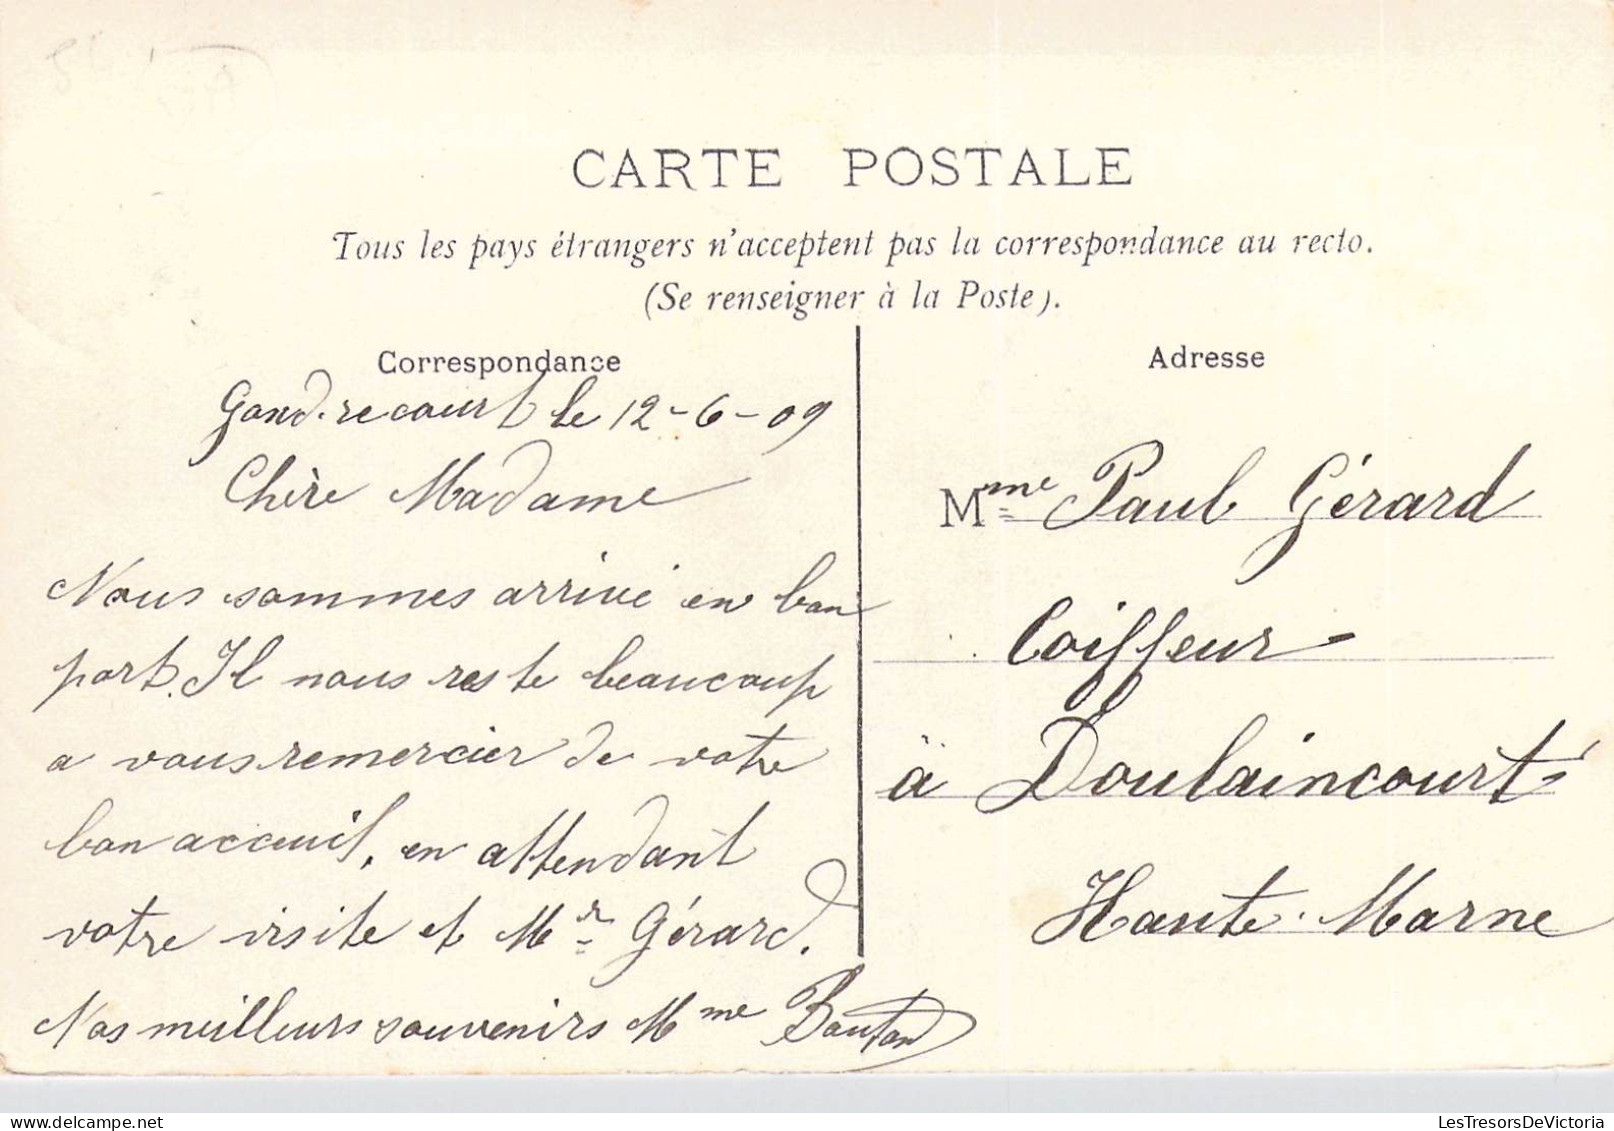 CARTE POSTALE
Tous les pays étrangers n'acceptent pas la correspondance au recto.
(Se renseigner à la Poste).
Correspondance
Gondrecourt le 12-6-09
Chère Madame
Nous sommes arrivé en bon
port. Il nous reste beaucoup
a vous remercier de votre
bon acceuil, en attendant
votre visite et Mr Gérard.
Nos meilleurs souvenirs Mme
Adresse
Mme Paul Gérard
Coiffeur
à Doulaincourt
Haute-Marne
LesTresorsDeVictoria